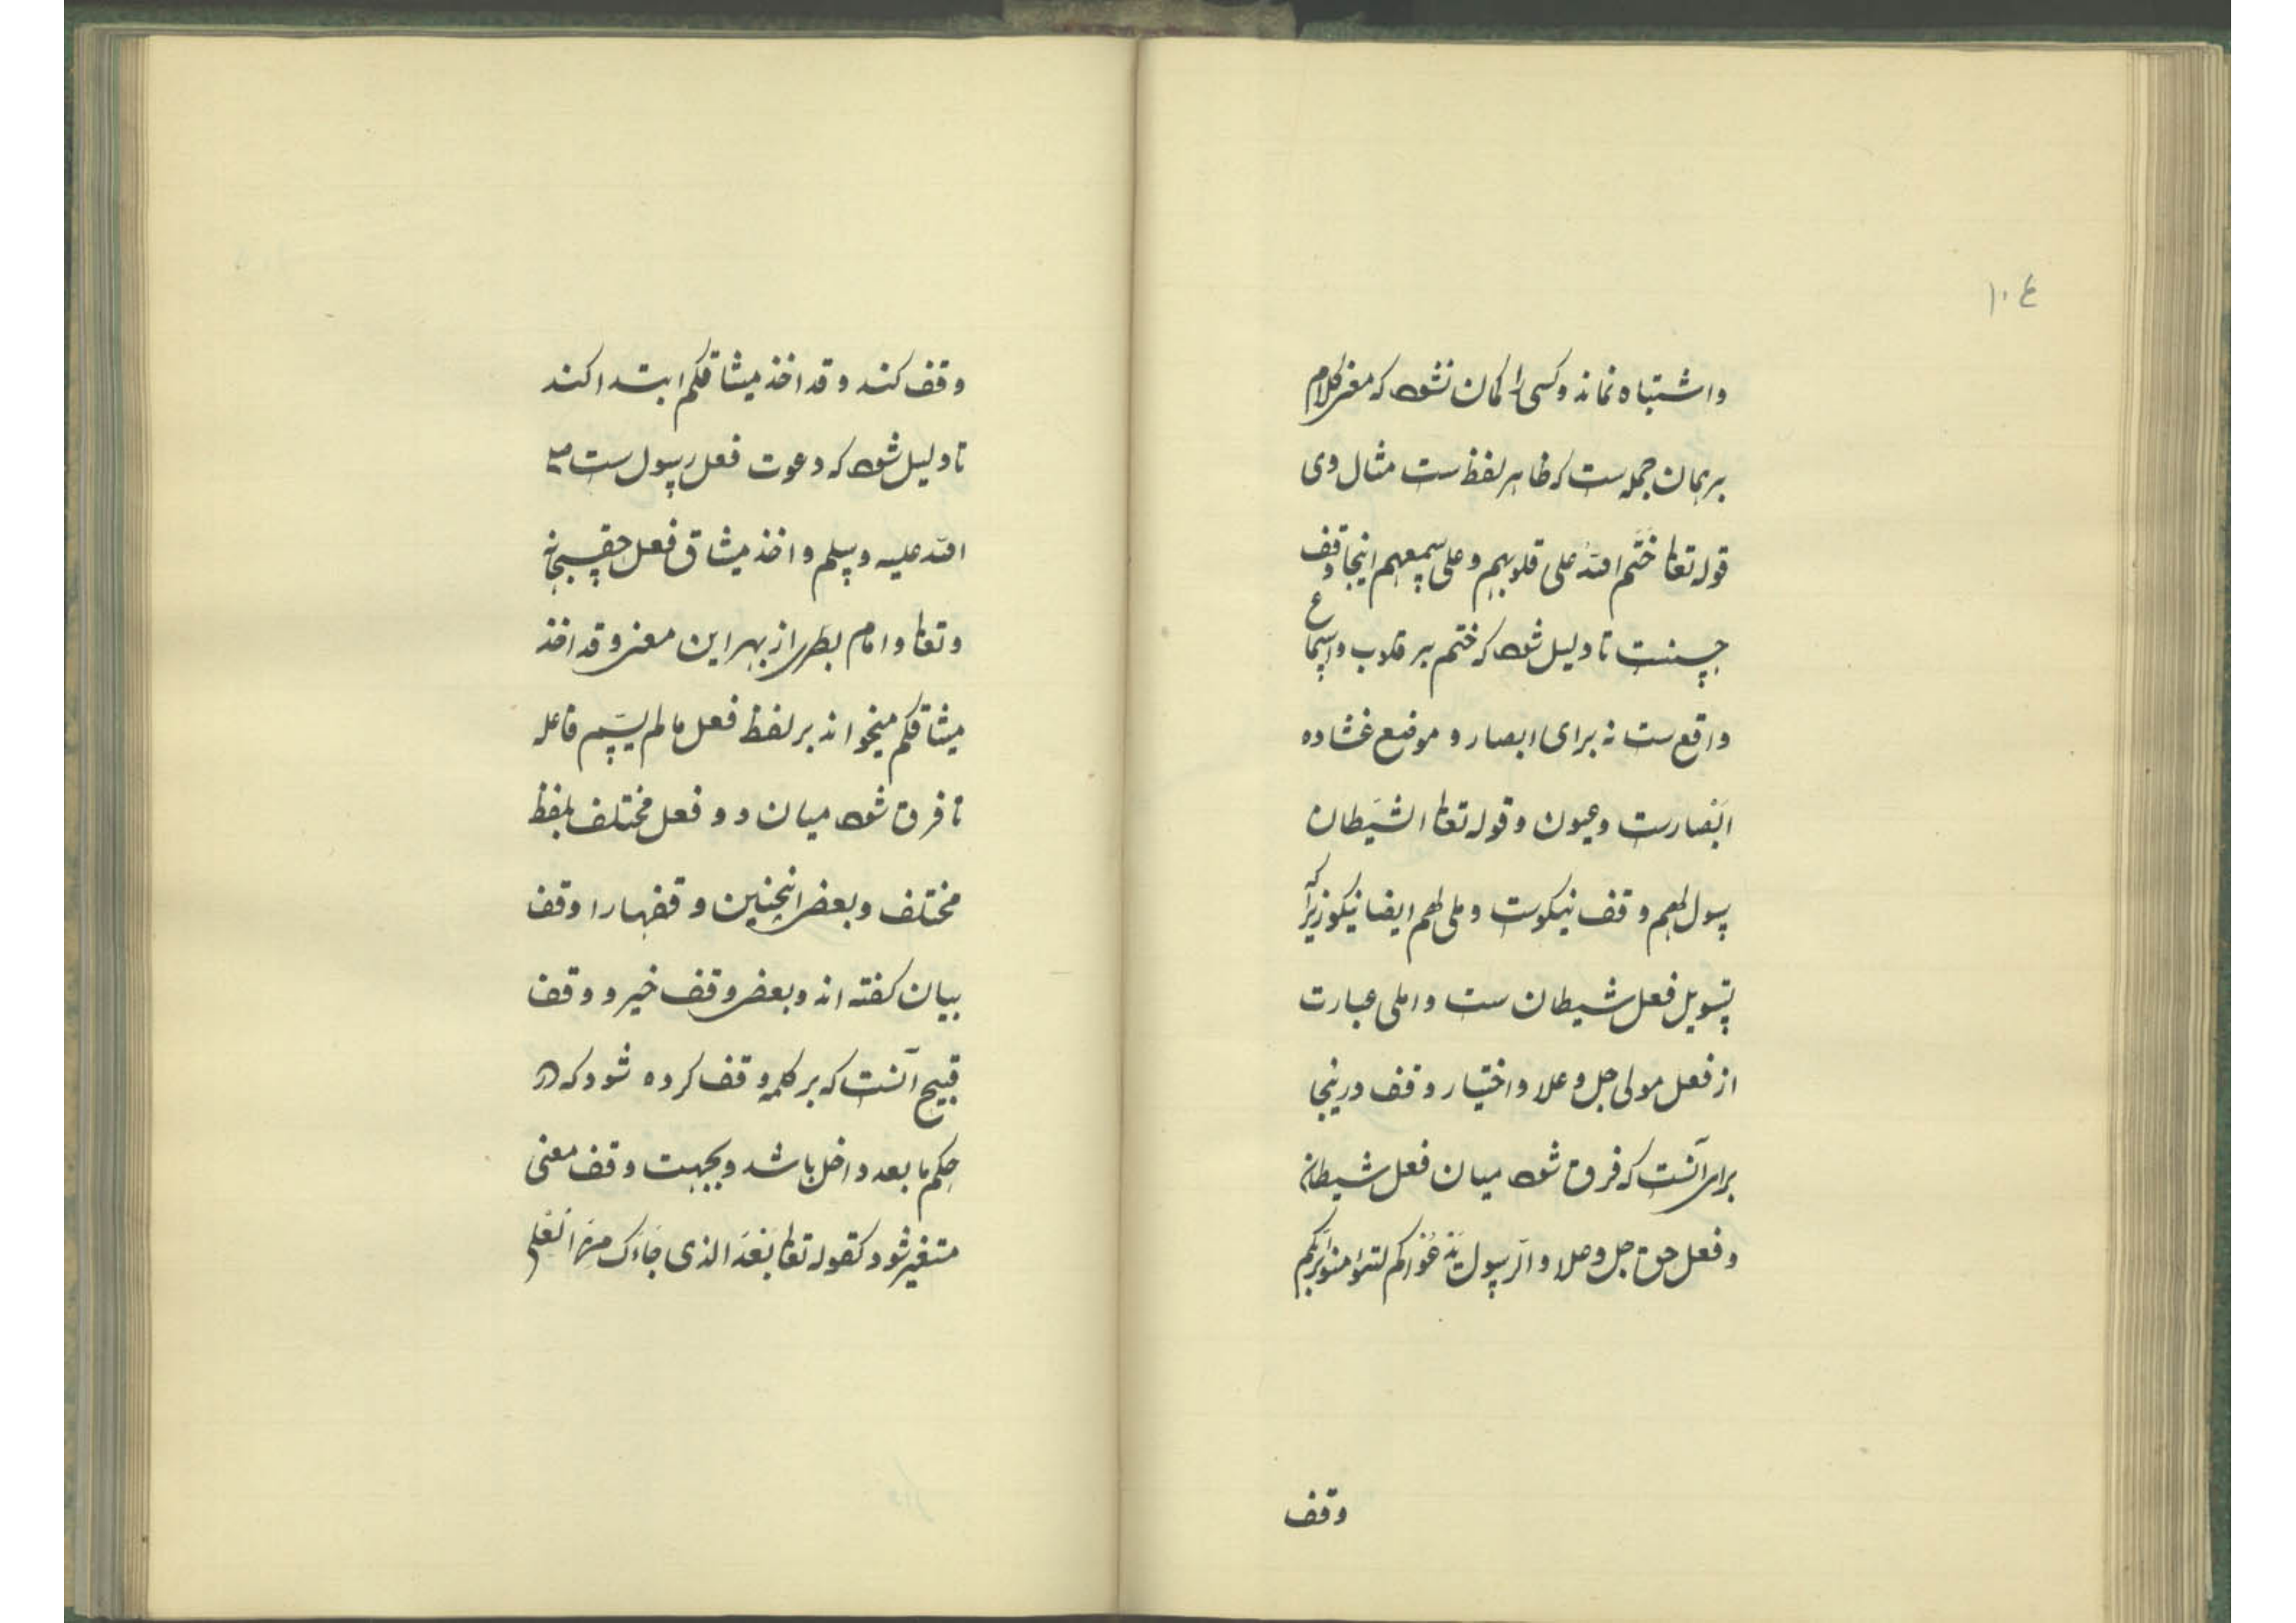 ۱۰۴
واشتباه نماند وکسی را کمان نشود که معنی کلام
برهمان جمله ست که ظاهر لفظ ست مثال وی
قوله تعالی ختم الله علی قلوبهم وعلی سمعهم اینجا وقف
حسنست تا دلیل شود که ختم بر قلوب واسماع
واقع ست نه برای ابصار و موضع غشاوه
ابصارست وعیون وقوله تعالی الشیطان
سول لهم وقف نیکوست و ملی لهم ایضا نیکو زیرا که
تسویل فعل شیطان ست واملی عبارت
از فعل مولی جل وعلا واختیار وقف درینجا
برای آنست که فرق شود میان فعل شیطان
وفعل حق جل وعلا والرسول یدعوکم لتؤمنوا بربکم
وقف
وقف کند وقد اخذ میثاقکم ابتدا کند
تا دلیل شود که دعوت فعل رسول ست صلی
الله علیه وسلم واخذ میثاق فعل حق سبحانه
وتعالی وامام بصری از بهر این معنی وقد اخذ
میثاقکم میخواند بر لفظ فعل مالم یسم فاعله
تا فرق شود میان دو فعل مختلف بلفظ
مختلف وبعضی اینچنین وقفهارا وقف
بیان کفته اند وبعضی وقف خیر و وقف
قبیح آنست که بر کلمه وقف کرده شود که در
حکم ما بعد داخل باشد وبجهت وقف معنی
متغیر شود کقوله تعالی بعد الذی جاءک من العلم